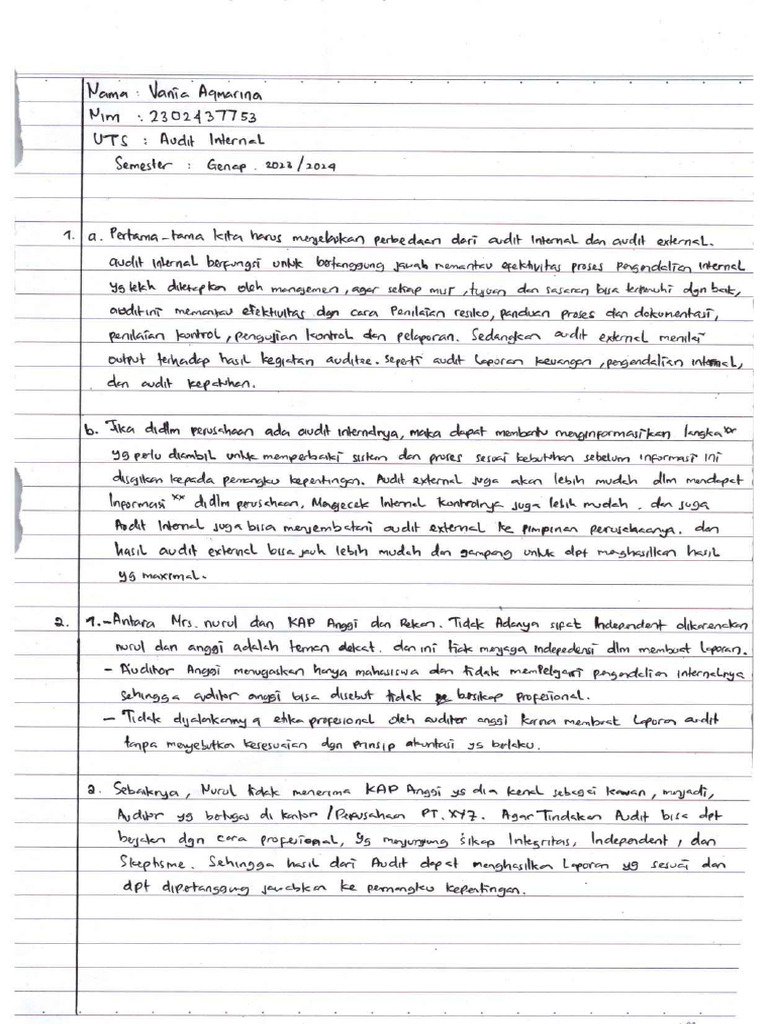 Nama : Vania Aqmarina
Nim : 2302437753
UTS : Audit Internal
Semester : Genap . 2023/2024
1. a. Pertama-tama kita harus menyebukan perbedaan dari audit internal dan audit external.
audit internal berfungsi untuk bertanggung jawab memantau efektivitas proses pengendalian internal
yg telah ditetapkan oleh manajemen, agar setiap misi, tujuan dan sasaran bisa terpenuhi dgn baik,
audit ini memantau efektivitas dgn cara Penilaian resiko, panduan proses dan dokumentasi,
penilaian kontrol, pengujian kontrol dan pelaporan. Sedangkan audit external menilai
output terhadap hasil kegiatan auditee. seperti audit Laporan keuangan, pengendalian internal,
dan audit kepatuhan.
b. Jika didlm perusahaan ada audit internalnya, maka dapat membantu menginformasikan langka xx
yg perlu diambil untuk memperbaiki sistem dan proses sesuai kebutuhan sebelum informasi ini
disajikan kepada pemangku kepentingan. Audit external juga akan lebih mudah dlm mendapat
Informasi xx didlm perusahaan, Mengecek Internal kontrolnya juga lebih mudah. dan juga
Audit Internal juga bisa menjembatani audit external ke pimpinan perusahaanya. dan
hasil audit external bisa jauh lebih mudah dan gampang untuk dpt menghasilkan hasil
yg maximal.
2. 1.- Antara Mrs. nurul dan KAP Anggi dan Rekan. Tidak Adanya sifat Independent dikarenakan
nurul dan anggi adalah teman dekat. dan ini tidak menjaga Independensi dlm membuat Laporan.
- Auditor Anggi menugaskan hanya mahasiswa dan tidak mempelajari pengendalian internalnya
sehingga auditor anggi bisa disebut tidak bersikap profesional.
- Tidak dijalankannya etika profesional oleh auditor anggi karna membuat Laporan audit
tanpa menyebutkan kesesuaian dgn prinsip akuntasi yg berlaku.
2. Sebaiknya, Nurul tidak menerima KAP Anggi yg dia kenal sebagai kawan, menjadi,
Auditor yg bertugas di kantor / Perusahaan PT. XYZ. Agar Tindakan Audit bisa dpt
berjalan dgn cara profesional, Yg menjunjung sikap Integritas, Independent, dan
Skeptisme. Sehingga hasil dari Audit dapat menghasilkan Laporan yg sesuai dan
dpt dipertanggung jawabkan ke pemangku kepentingan.